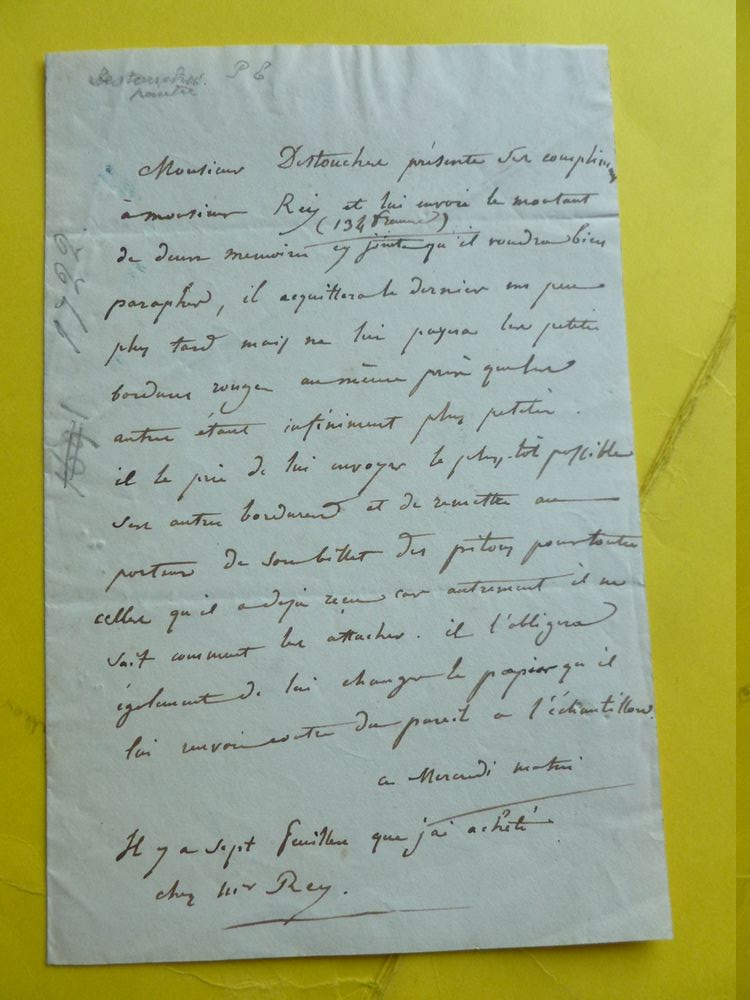 Destouches. P L
peintre
Monsieur Destouches présente ses complimens
à monsieur Rey et lui envoie le montant
(134 francs)
de deux memoires cy joints qu'il voudra bien
parapher, il acquittera le dernier un peu
plus tard mais ne lui payera les petites
bordures rouges au même prix que les
autres étant infiniment plus petites.
il le prie de lui envoyer le plus-tôt possible
ses autres bordures et de remettre au
porteur de son billet des pitons pour toutes
celles qu'il a deja reçu car autrement il ne
sait comment les attacher. il l'obligera
également de lui changer le papier qu'il
lui renvoie contre du pareil a l'échantillon.
a Mercredi matin
Il y a sept feuilles que j'ai acheté
chez Mr Rey.